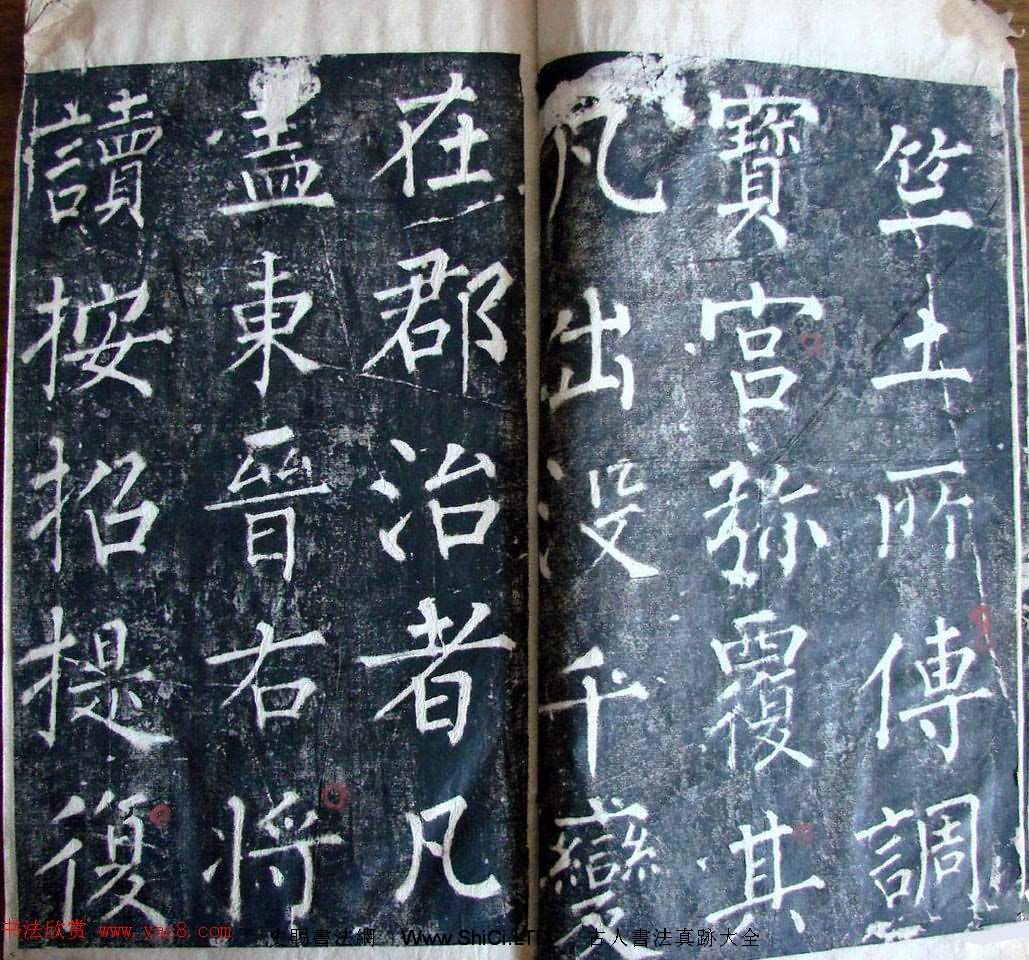 竺土所傳調
寶宮弥覆其
凡出没千變
在郡治者凡
盖東晉右将
讀按招提復
书法欣赏 www.yac8.com
史聞書法網 Www.ShiCi.LTD 古人書法真跡大全